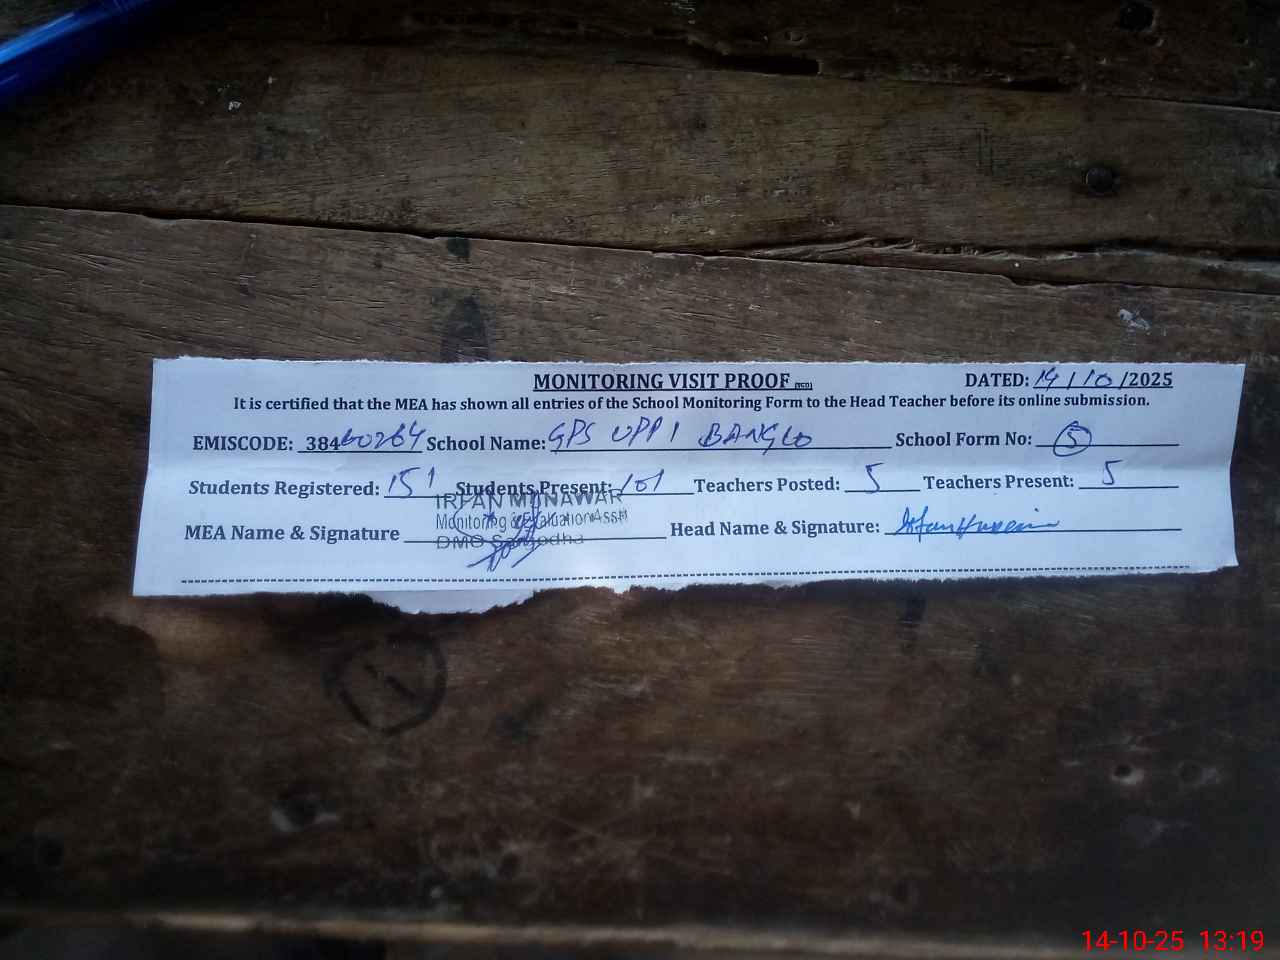 MONITORING VISIT PROOF DATED: 14/10/2025
It is certified that the MEA has shown all entries of the School Monitoring Form to the Head Teacher before its online submission.
EMISCODE: 38460264 School Name: GPS UPPI BANGLO School Form No: 5
Students Registered: 151 Students Present: 101 Teachers Posted: 5 Teachers Present: 5
IRFAN MUNAWAR
Monitoring & Evaluation Asstt
MEA Name & Signature DMO Sargodha Head Name & Signature: Irfan Hussain
14-10-25 13:19